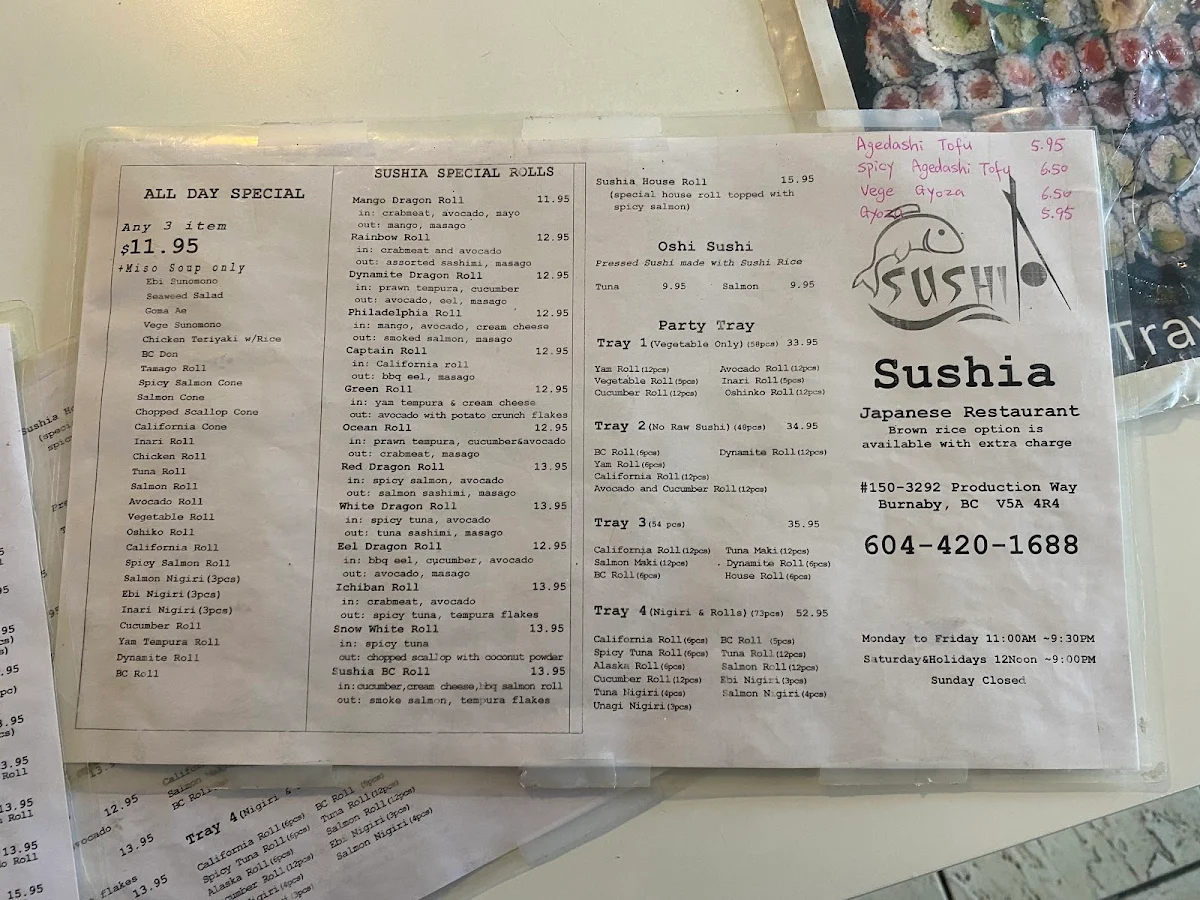 ALL DAY SPECIAL
Any 3 item
$11.95
+Miso Soup only
Ebi Sunomono
Seaweed Salad
Goma Ae
Vege Sunomono
Chicken Teriyaki w/Rice
BC Don
Tamago Roll
Spicy Salmon Cone
Salmon Cone
Chopped Scallop Cone
California Cone
Inari Roll
Chicken Roll
Tuna Roll
Salmon Roll
Avocado Roll
Vegetable Roll
Oshiko Roll
California Roll
Spicy Salmon Roll
Salmon Nigiri(3pcs)
Ebi Nigiri(3pcs)
Inari Nigiri(3pcs)
Cucumber Roll
Yam Tempura Roll
Dynamite Roll
BC Roll
SUSHIA SPECIAL ROLLS
Mango Dragon Roll 11.95
in: crabmeat, avocado, mayo
out: mango, masago
Rainbow Roll 12.95
in: crabmeat and avocado
out: assorted sashimi, masago
Dynamite Dragon Roll 12.95
in: prawn tempura, cucumber
out: avocado, eel, masago
Philadelphia Roll 12.95
in: mango, avocado, cream cheese
out: smoked salmon, masago
Captain Roll 12.95
in: California roll
out: bbq eel, masago
Green Roll 12.95
in: yam tempura & cream cheese
out: avocado with potato crunch flakes
Ocean Roll 12.95
in: prawn tempura, cucumber&avocado
out: crabmeat, masago
Red Dragon Roll 13.95
in: spicy salmon, avocado
out: salmon sashimi, masago
White Dragon Roll 13.95
in: spicy tuna, avocado
out: tuna sashimi, masago
Eel Dragon Roll 12.95
in: bbq eel, cucumber, avocado
out: avocado, masago
Ichiban Roll 13.95
in: crabmeat, avocado
out: spicy tuna, tempura flakes
Snow White Roll 13.95
in: spicy tuna
out: chopped scallop with coconut powder
Sushia BC Roll 13.95
in:cucumber,cream cheese,bbq salmon roll
out: smoke salmon, tempura flakes
Sushia House Roll 15.95
(special house roll topped with
spicy salmon)
Oshi Sushi
Pressed Sushi made with Sushi Rice
Tuna 9.95 Salmon 9.95
Party Tray
Tray 1(Vegetable Only)(58pcs) 33.95
Yam Roll(12pcs) Avocado Roll(12pcs)
Vegetable Roll(5pcs) Inari Roll(5pcs)
Cucumber Roll(12pcs) Oshinko Roll(12pcs)
Tray 2(No Raw Sushi)(48pcs) 34.95
BC Roll(6pcs) Dynamite Roll(12pcs)
Yam Roll(6pcs)
California Roll(12pcs)
Avocado and Cucumber Roll(12pcs)
Tray 3(54 pcs) 35.95
California Roll(12pcs) Tuna Maki(12pcs)
Salmon Maki(12pcs) Dynamite Roll(6pcs)
BC Roll(6pcs) House Roll(6pcs)
Tray 4(Nigiri & Rolls)(73pcs) 52.95
California Roll(6pcs) BC Roll (5pcs)
Spicy Tuna Roll(6pcs) Tuna Roll(12pcs)
Alaska Roll(6pcs) Salmon Roll(12pcs)
Cucumber Roll(12pcs) Ebi Nigiri(3pcs)
Tuna Nigiri(4pcs) Salmon Nigiri(4pcs)
Unagi Nigiri(3pcs)
Agedashi Tofu 5.95
Spicy Agedashi Tofu 6.50
Vege Gyoza 6.50
Gyoza 5.95
SUSHIA
Sushia
Japanese Restaurant
Brown rice option is
available with extra charge
#150-3292 Production Way
Burnaby, BC V5A 4R4
604-420-1688
Monday to Friday 11:00AM ~9:30PM
Saturday&Holidays 12Noon ~9:00PM
Sunday Closed
Tra
Sushia Ho
(speci
spic
12.95
13.95
flakes 13.95
BC Roll
Tray 4(Nigiri &
California Roll(6pcs) BC Roll (5pcs)
Spicy Tuna Roll(6pcs) Tuna Roll(12pcs)
Alaska Roll(6pcs) Salmon Roll(12pcs)
cumber Roll(12pcs) Ebi Nigiri(3pcs)
Salmon Nigiri(4pcs)
13.95
Roll
13.95
Roll
15.95